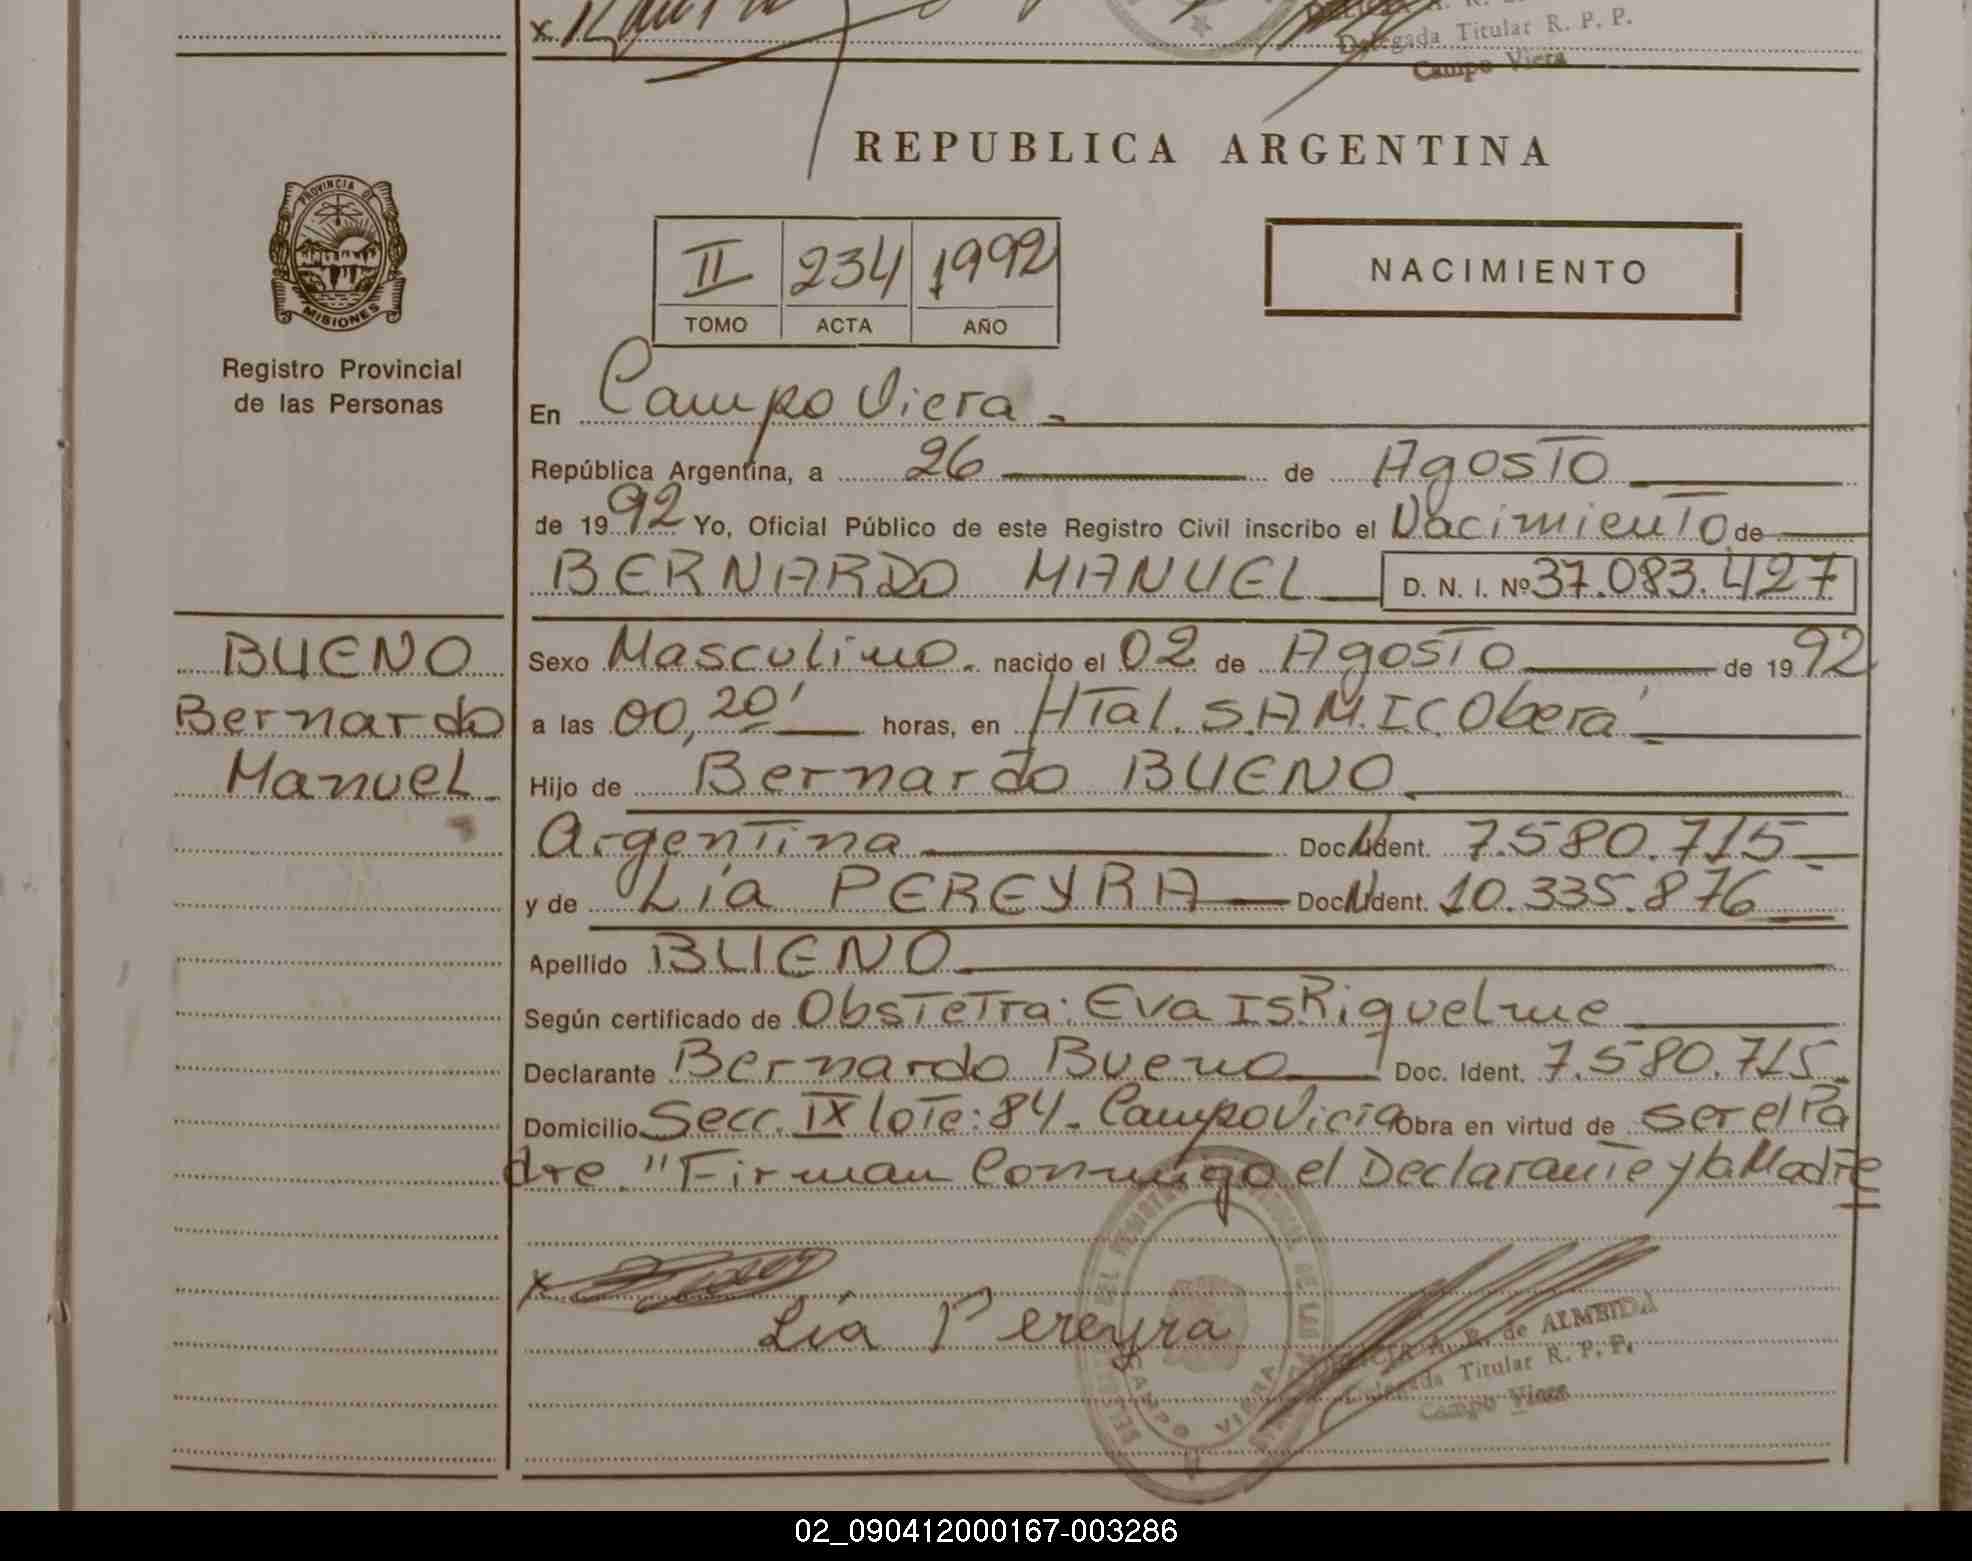 Delegada Titular R. P. P.
Campo Viera
REPUBLICA ARGENTINA
PROVINCIA DE
MISIONES
Registro Provincial
de las Personas
II 234 1992
TOMO ACTA AÑO
NACIMIENTO
En Campo Viera
República Argentina, a 26 de Agosto
de 1992 Yo, Oficial Público de este Registro Civil inscribo el Nacimiento de
BERNARDO MANUEL D. N. I. Nº 37.083.427
BUENO
Bernardo
Manuel
Sexo Masculino. nacido el 02 de Agosto de 1992
a las 00,20' horas, en HTal. S.A.M.I.C. Obera'
Hijo de Bernardo BUENO
Argentina Doc. Ident. 7.580.715
y de Lía PEREYRA Doc. Ident. 10.335.876
Apellido BUENO
Según certificado de Obstetra: Eva Is Riquelme
Declarante Bernardo Bueno Doc. Ident. 7.580.715
Domicilio Secc. IX lote: 84. Campo Viera Obra en virtud de ser el Pa
dre. "Firman Conmigo el Declarante y la Madre
x
Lia Pereyra
CAMPO VIERA
A. R. de ALMEIDA
Delegada Titular R. P. P.
Campo Viera
02_090412000167-003286